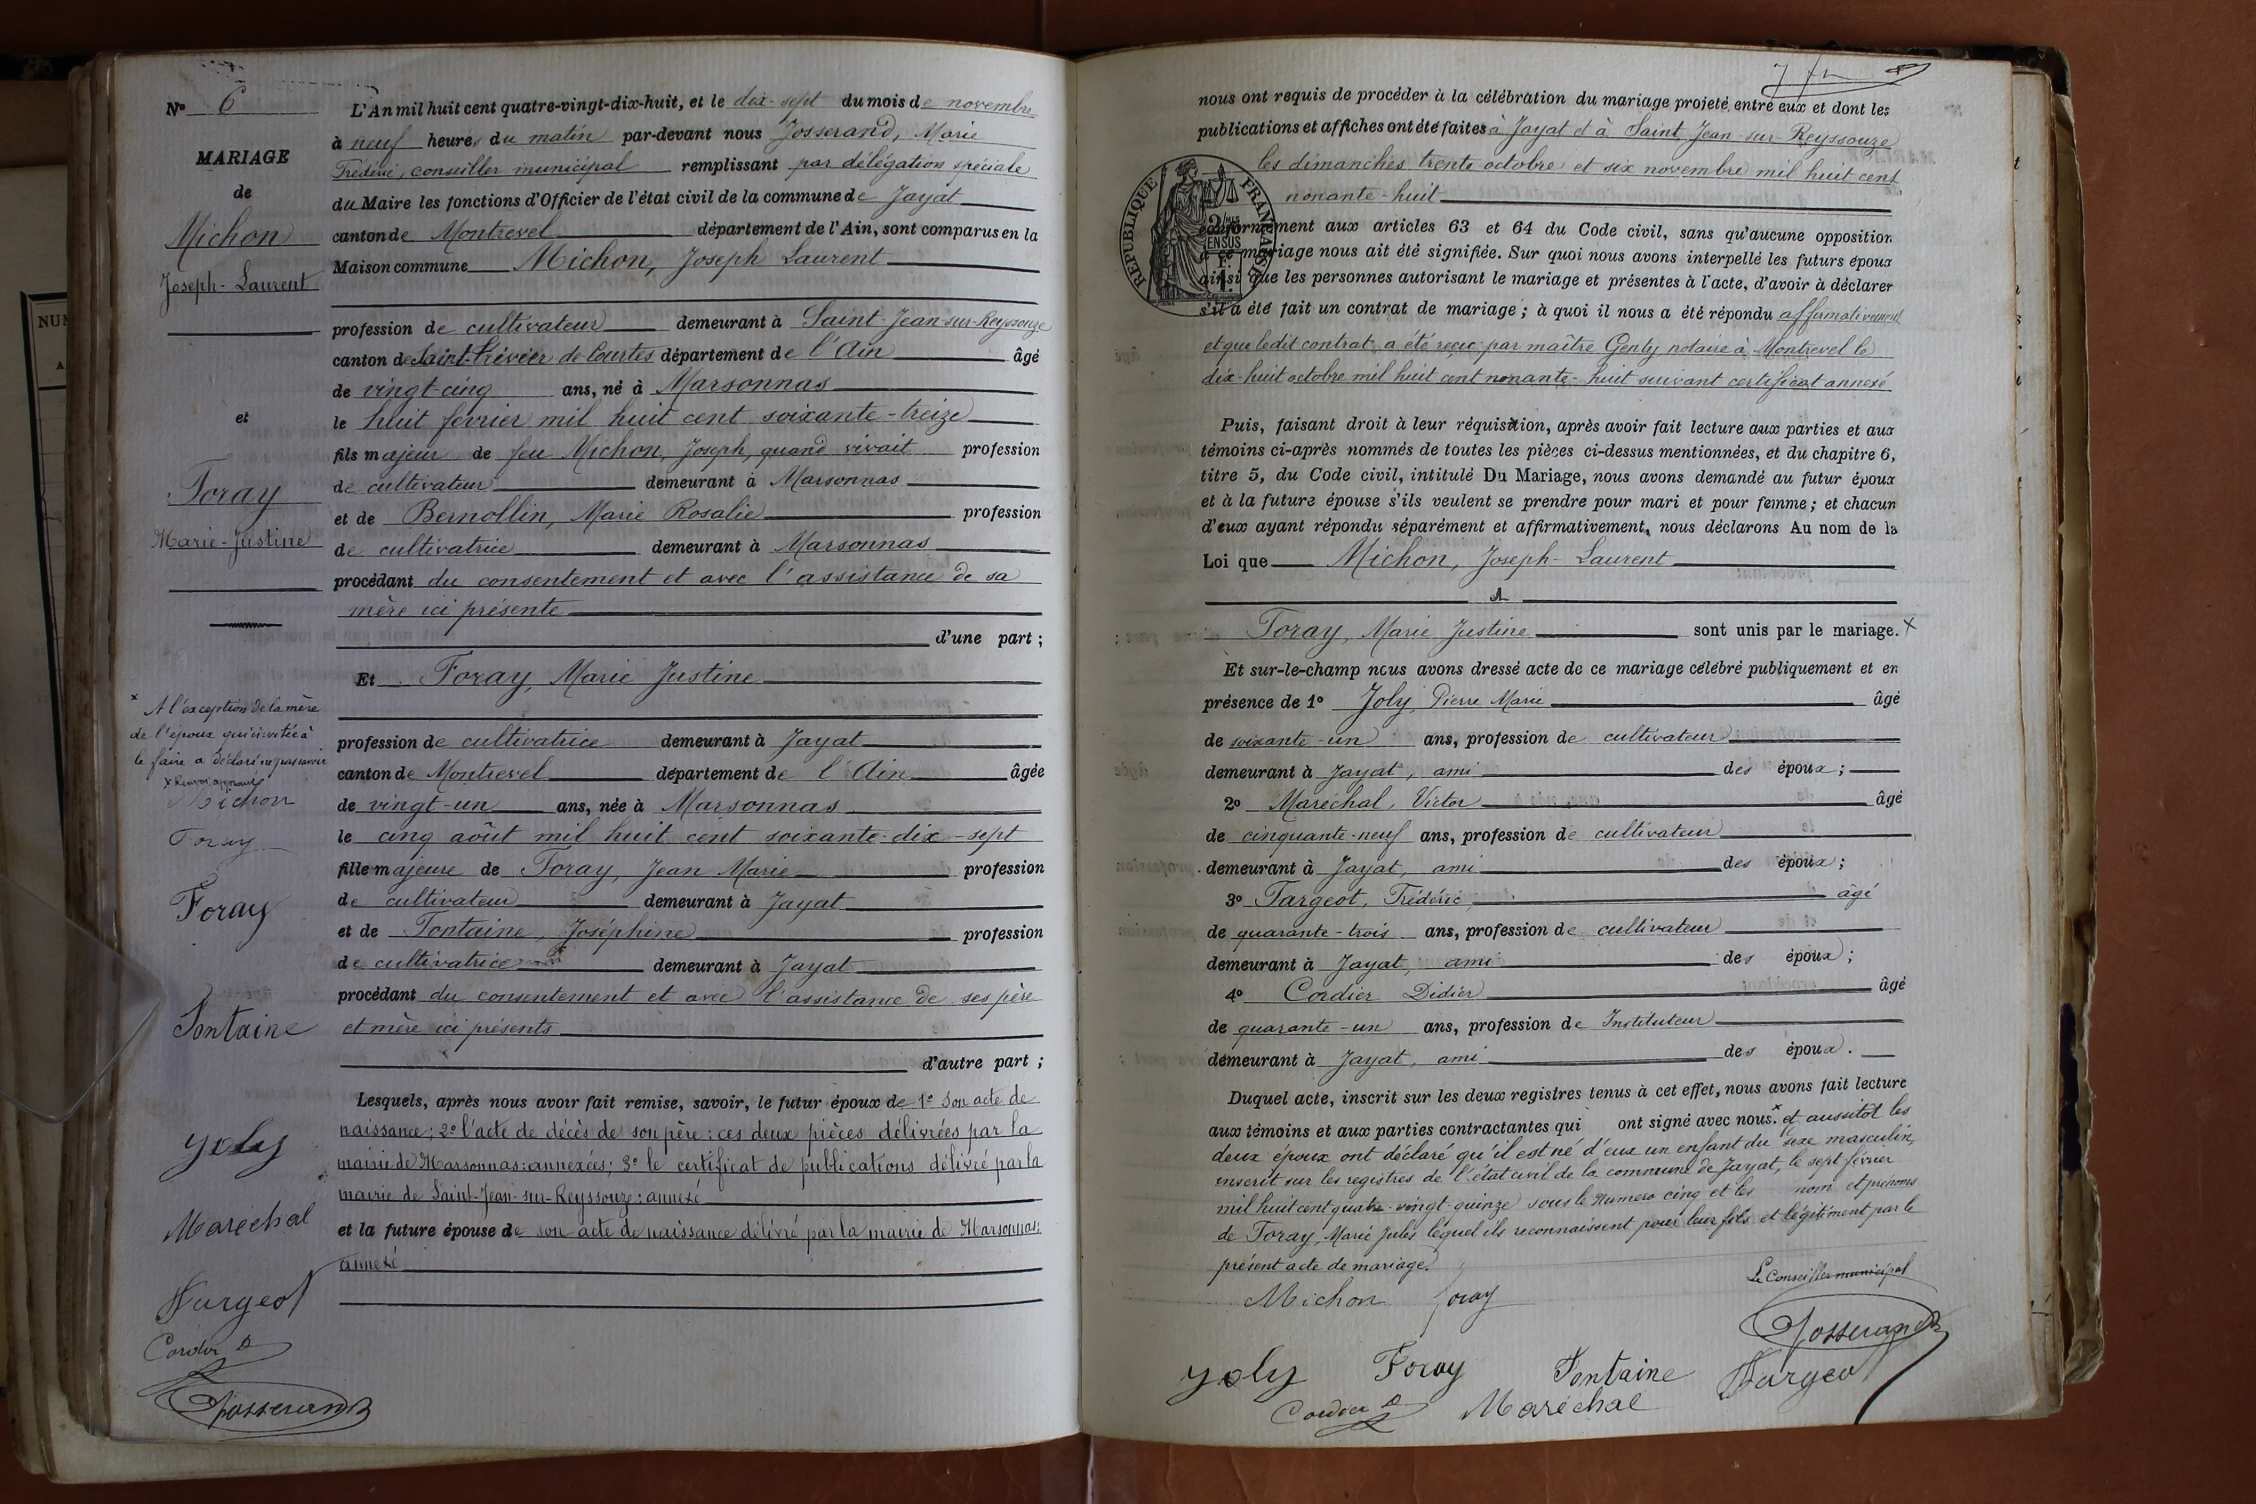 Nº 6
MARIAGE
de
Michon
Joseph-Laurent
et
Foray
Marie-Justine
x A l'exception de la mère
de l'époux qui invitée à
le faire a déclaré ne pas savoir
x Renvoi approuvé
Michon
Foray
Foray
Fontaine
Joly
Maréchal
Fargeot
Cordier D
Josserand
L'An mil huit cent quatre-vingt-dix-huit, et le dix-sept du mois de novembre
à neuf heures du matin par-devant nous Josserand, Marie
Frédéric, conseiller municipal remplissant par délégation spéciale
du Maire les fonctions d'Officier de l'état civil de la commune de Jayat
canton de Montrevel département de l'Ain, sont comparus en la
Maison commune Michon, Joseph Laurent
profession de cultivateur demeurant à Saint-Jean-sur-Reyssouze
canton de Saint-Trivier de Courtes département de l'Ain âgé
de vingt-cinq ans, né à Marsonnas
le huit février mil huit cent soixante-treize
fils majeur de feu Michon, Joseph, quand vivait profession
de cultivateur demeurant à Marsonnas
et de Bernollin, Marie Rosalie profession
de cultivatrice demeurant à Marsonnas
procédant du consentement et avec l'assistance de sa
mère ici présente
d'une part ;
Et Foray, Marie Justine
profession de cultivatrice demeurant à Jayat
canton de Montrevel département de l'Ain âgée
de vingt-un ans, née à Marsonnas
le cinq août mil huit cent soixante-dix-sept
fille majeure de Foray, Jean Marie profession
de cultivateur demeurant à Jayat
et de Fontaine, Joséphine profession
de cultivatrice demeurant à Jayat
procédant du consentement et avec l'assistance de ses père
et mère ici présents
d'autre part ;
Lesquels, après nous avoir fait remise, savoir, le futur époux de 1º son acte de
naissance ; 2º l'acte de décès de son père : ces deux pièces délivrées par la
mairie de Marsonnas : annexées ; 3º le certificat de publications délivré par la
mairie de Saint-Jean-sur-Reyssouze : annexé
et la future épouse de son acte de naissance délivré par la mairie de Marsonnas :
annexé
nous ont requis de procéder à la célébration du mariage projeté entre eux et dont les
publications et affiches ont été faites à Jayat et à Saint Jean-sur-Reyssouze
les dimanches trente octobre et six novembre mil huit cent
nonante-huit
REPUBLIQUE FRANÇAISE
conformément aux articles 63 et 64 du Code civil, sans qu'aucune opposition
à ce mariage nous ait été signifiée. Sur quoi nous avons interpellé les futurs époux
ainsi que les personnes autorisant le mariage et présentes à l'acte, d'avoir à déclarer
s'il a été fait un contrat de mariage ; à quoi il nous a été répondu affirmativement
et que ledit contrat a été reçu par maître Genty notaire à Montrevel le
dix-huit octobre mil huit cent nonante-huit suivant certificat annexé
Puis, faisant droit à leur réquisition, après avoir fait lecture aux parties et aux
témoins ci-après nommés de toutes les pièces ci-dessus mentionnées, et du chapitre 6,
titre 5, du Code civil, intitulé Du Mariage, nous avons demandé au futur époux
et à la future épouse s'ils veulent se prendre pour mari et pour femme ; et chacun
d'eux ayant répondu séparément et affirmativement, nous déclarons Au nom de la
Loi que Michon, Joseph-Laurent
Foray, Marie Justine sont unis par le mariage. x
Et sur-le-champ nous avons dressé acte de ce mariage célébré publiquement et en
présence de 1º Joly, Pierre Marie âgé
de soixante-un ans, profession de cultivateur
demeurant à Jayat, ami des époux ;
2º Maréchal, Victor âgé
de cinquante-neuf ans, profession de cultivateur
demeurant à Jayat, ami des époux ;
3º Fargeot, Frédéric, âgé
de quarante-trois ans, profession de cultivateur
demeurant à Jayat, ami des époux ;
4º Cordier Didier âgé
de quarante-un ans, profession de Instituteur
demeurant à Jayat, ami des époux.
Duquel acte, inscrit sur les deux registres tenus à cet effet, nous avons fait lecture
aux témoins et aux parties contractantes qui ont signé avec nous. x et aussitôt les
deux époux ont déclaré qu'il est né d'eux un enfant du sexe masculin,
inscrit sur les registres de l'état civil de la commune de Jayat, le sept février
mil huit cent quatre-vingt-quinze sous le numéro cinq et les nom et prénoms
de Foray, Marie Jules lequel ils reconnaissent pour leur fils et légitiment par le
présent acte de mariage.
Le Conseiller municipal
Michon Foray
Josserand
Joly Foray Fontaine Fargeot
Cordier D Maréchal